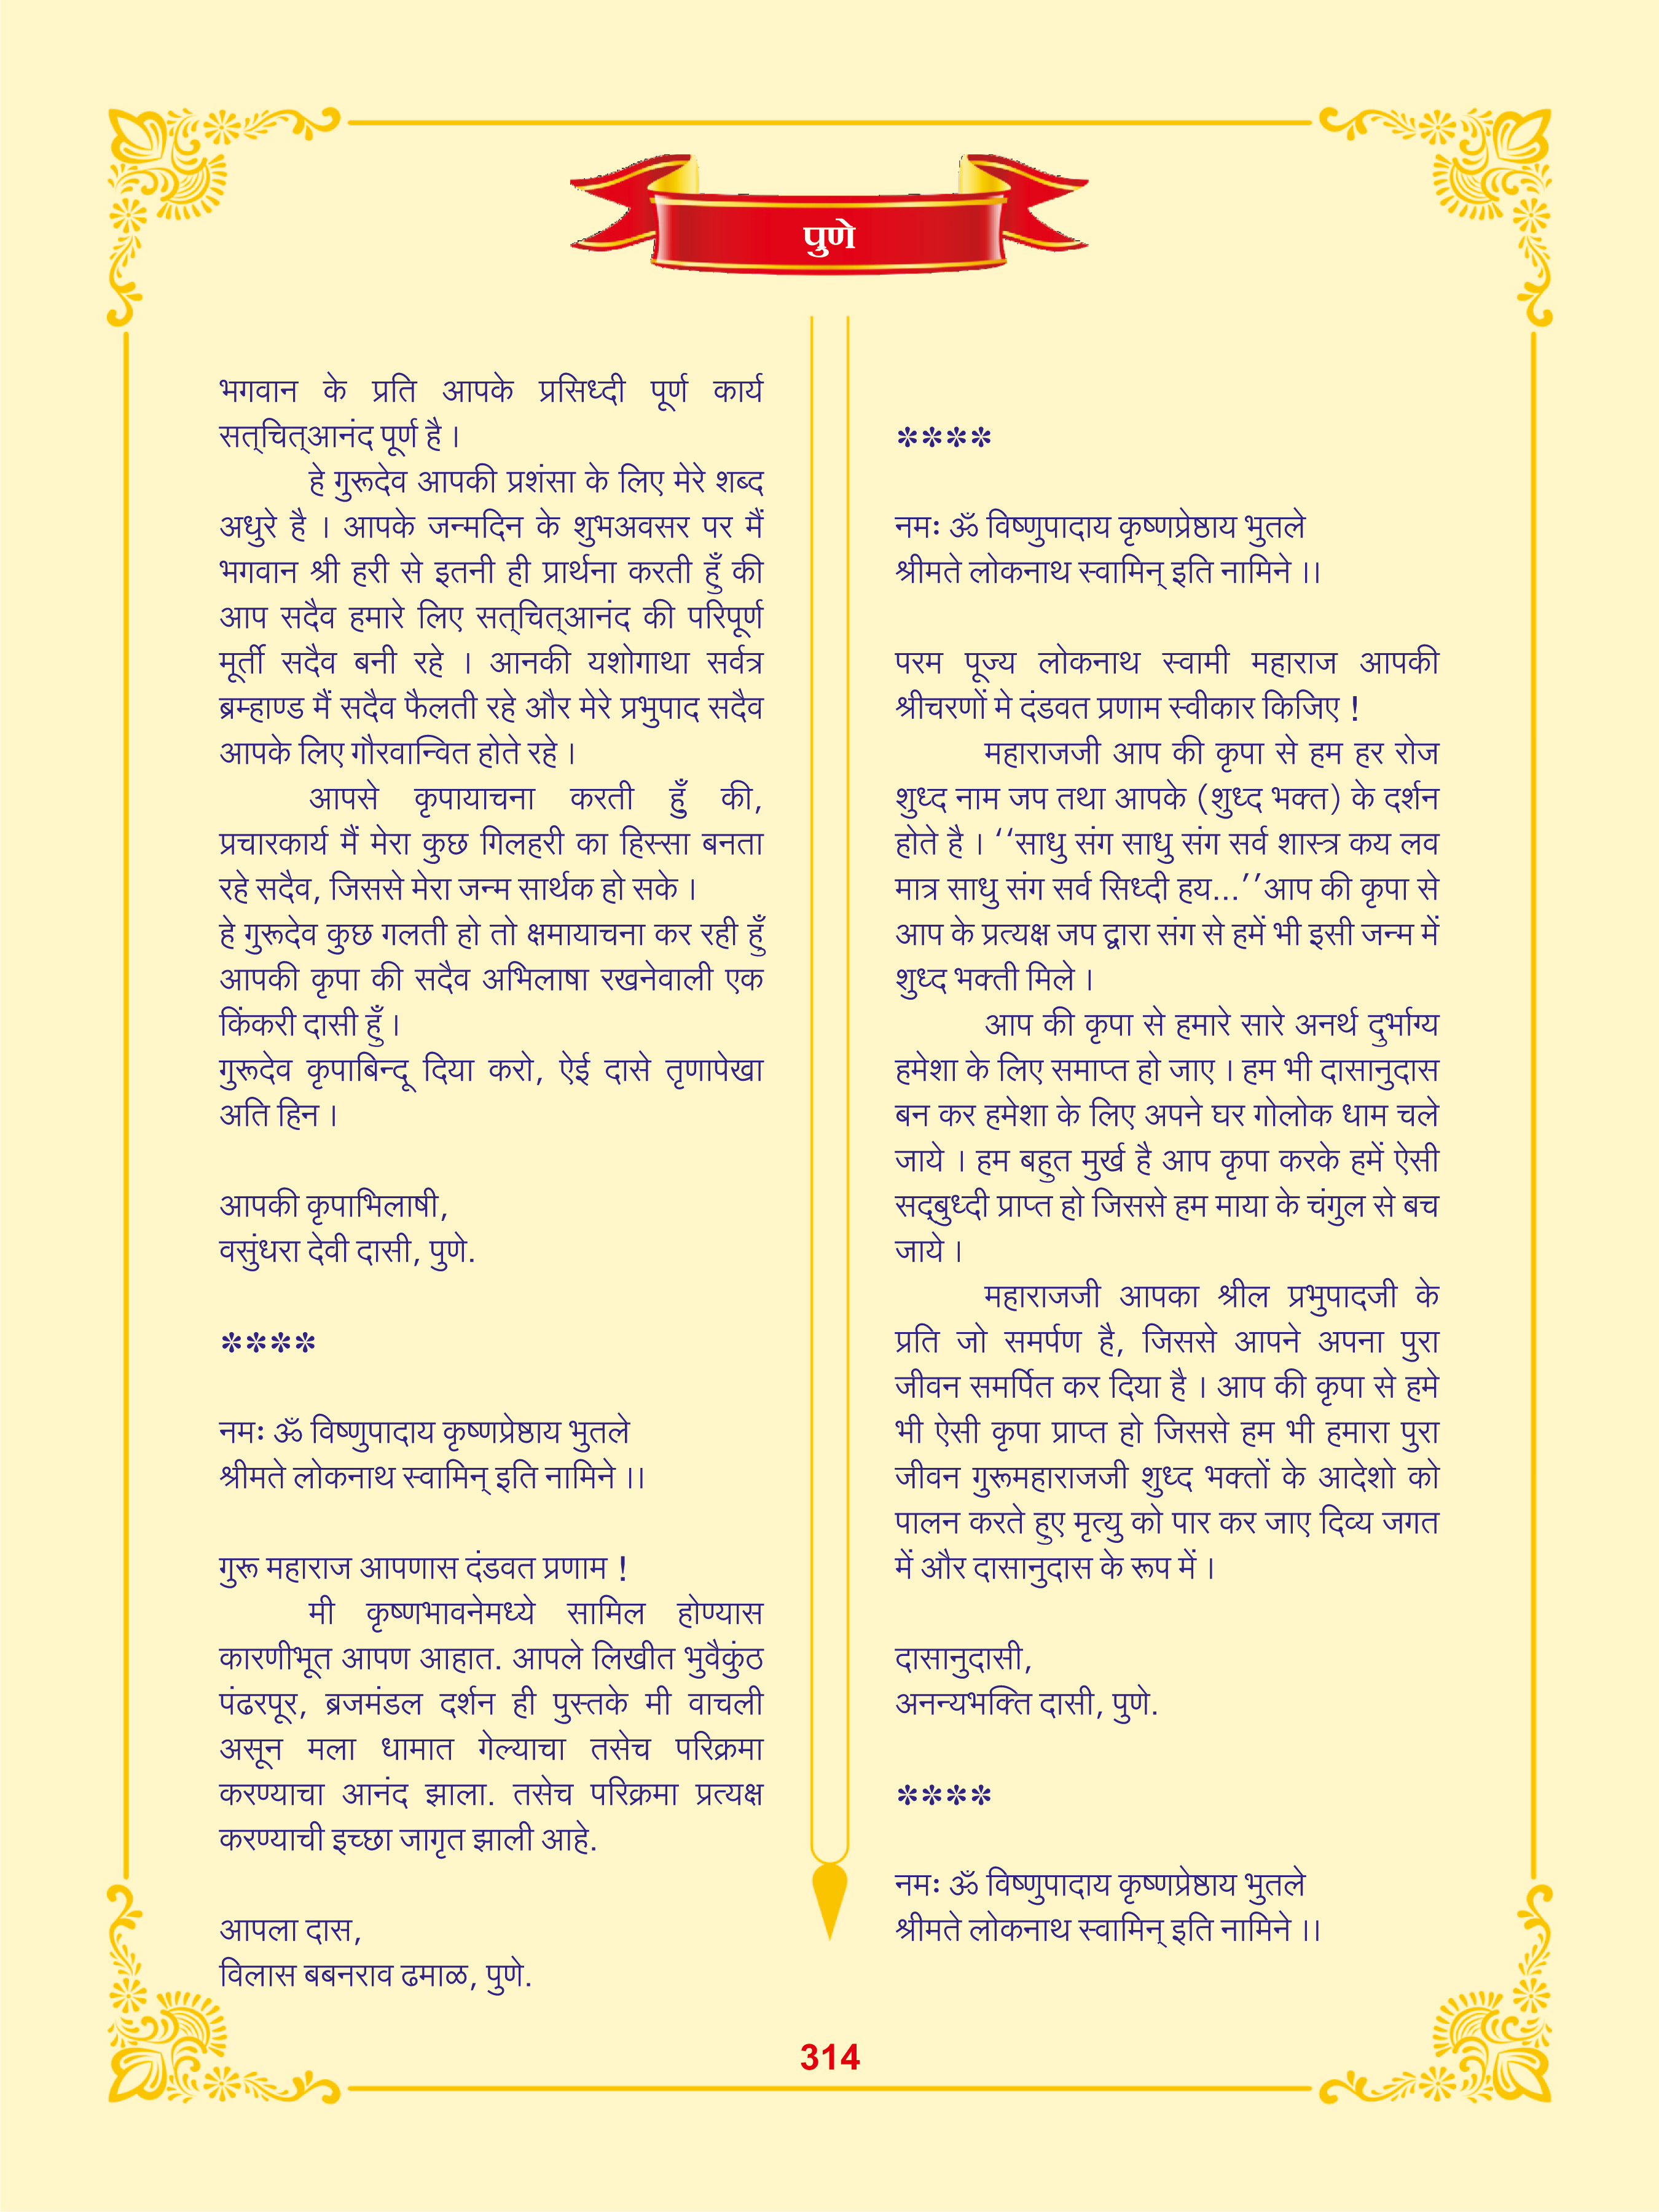 पुणे
भगवान के प्रति आपके प्रसिध्दी पूर्ण कार्य
सत्‌चित्‌आनंद पूर्ण है ।
हे गुरूदेव आपकी प्रशंसा के लिए मेरे शब्द
अधुरे है । आपके जन्मदिन के शुभअवसर पर मैं
भगवान श्री हरी से इतनी ही प्रार्थना करती हुँ की
आप सदैव हमारे लिए सत्‌चित्‌आनंद की परिपूर्ण
मूर्ती सदैव बनी रहे । आनकी यशोगाथा सर्वत्र
ब्रम्हाण्ड मैं सदैव फैलती रहे और मेरे प्रभुपाद सदैव
आपके लिए गौरवान्वित होते रहे ।
आपसे कृपायाचना करती हुँ की,
प्रचारकार्य मैं मेरा कुछ गिलहरी का हिस्सा बनता
रहे सदैव, जिससे मेरा जन्म सार्थक हो सके ।
हे गुरूदेव कुछ गलती हो तो क्षमायाचना कर रही हुँ
आपकी कृपा की सदैव अभिलाषा रखनेवाली एक
किंकरी दासी हुँ ।
गुरूदेव कृपाबिन्दू दिया करो, ऐई दासे तृणापेखा
अति हिन ।
आपकी कृपाभिलाषी,
वसुंधरा देवी दासी, पुणे.
****
नमः ॐ विष्णुपादाय कृष्णप्रेष्ठाय भुतले
श्रीमते लोकनाथ स्वामिन् इति नामिने ।।
गुरू महाराज आपणास दंडवत प्रणाम !
मी कृष्णभावनेमध्ये सामिल होण्यास
कारणीभूत आपण आहात. आपले लिखीत भुवैकुंठ
पंढरपूर, ब्रजमंडल दर्शन ही पुस्तके मी वाचली
असून मला धामात गेल्याचा तसेच परिक्रमा
करण्याचा आनंद झाला. तसेच परिक्रमा प्रत्यक्ष
करण्याची इच्छा जागृत झाली आहे.
आपला दास,
विलास बबनराव ढमाळ, पुणे.
****
नमः ॐ विष्णुपादाय कृष्णप्रेष्ठाय भुतले
श्रीमते लोकनाथ स्वामिन् इति नामिने ।।
परम पूज्य लोकनाथ स्वामी महाराज आपकी
श्रीचरणों मे दंडवत प्रणाम स्वीकार किजिए !
महाराजजी आप की कृपा से हम हर रोज
शुध्द नाम जप तथा आपके (शुध्द भक्त) के दर्शन
होते है । ‘‘साधु संग साधु संग सर्व शास्त्र कय लव
मात्र साधु संग सर्व सिध्दी हय...’’आप की कृपा से
आप के प्रत्यक्ष जप द्वारा संग से हमें भी इसी जन्म में
शुध्द भक्ती मिले ।
आप की कृपा से हमारे सारे अनर्थ दुर्भाग्य
हमेशा के लिए समाप्त हो जाए । हम भी दासानुदास
बन कर हमेशा के लिए अपने घर गोलोक धाम चले
जाये । हम बहुत मुर्ख है आप कृपा करके हमें ऐसी
सद्‌बुध्दी प्राप्त हो जिससे हम माया के चंगुल से बच
जाये ।
महाराजजी आपका श्रील प्रभुपादजी के
प्रति जो समर्पण है, जिससे आपने अपना पुरा
जीवन समर्पित कर दिया है । आप की कृपा से हमे
भी ऐसी कृपा प्राप्त हो जिससे हम भी हमारा पुरा
जीवन गुरूमहाराजजी शुध्द भक्तों के आदेशो को
पालन करते हुए मृत्यु को पार कर जाए दिव्य जगत
में और दासानुदास के रूप में ।
दासानुदासी,
अनन्यभक्ति दासी, पुणे.
****
नमः ॐ विष्णुपादाय कृष्णप्रेष्ठाय भुतले
श्रीमते लोकनाथ स्वामिन् इति नामिने ।।
314